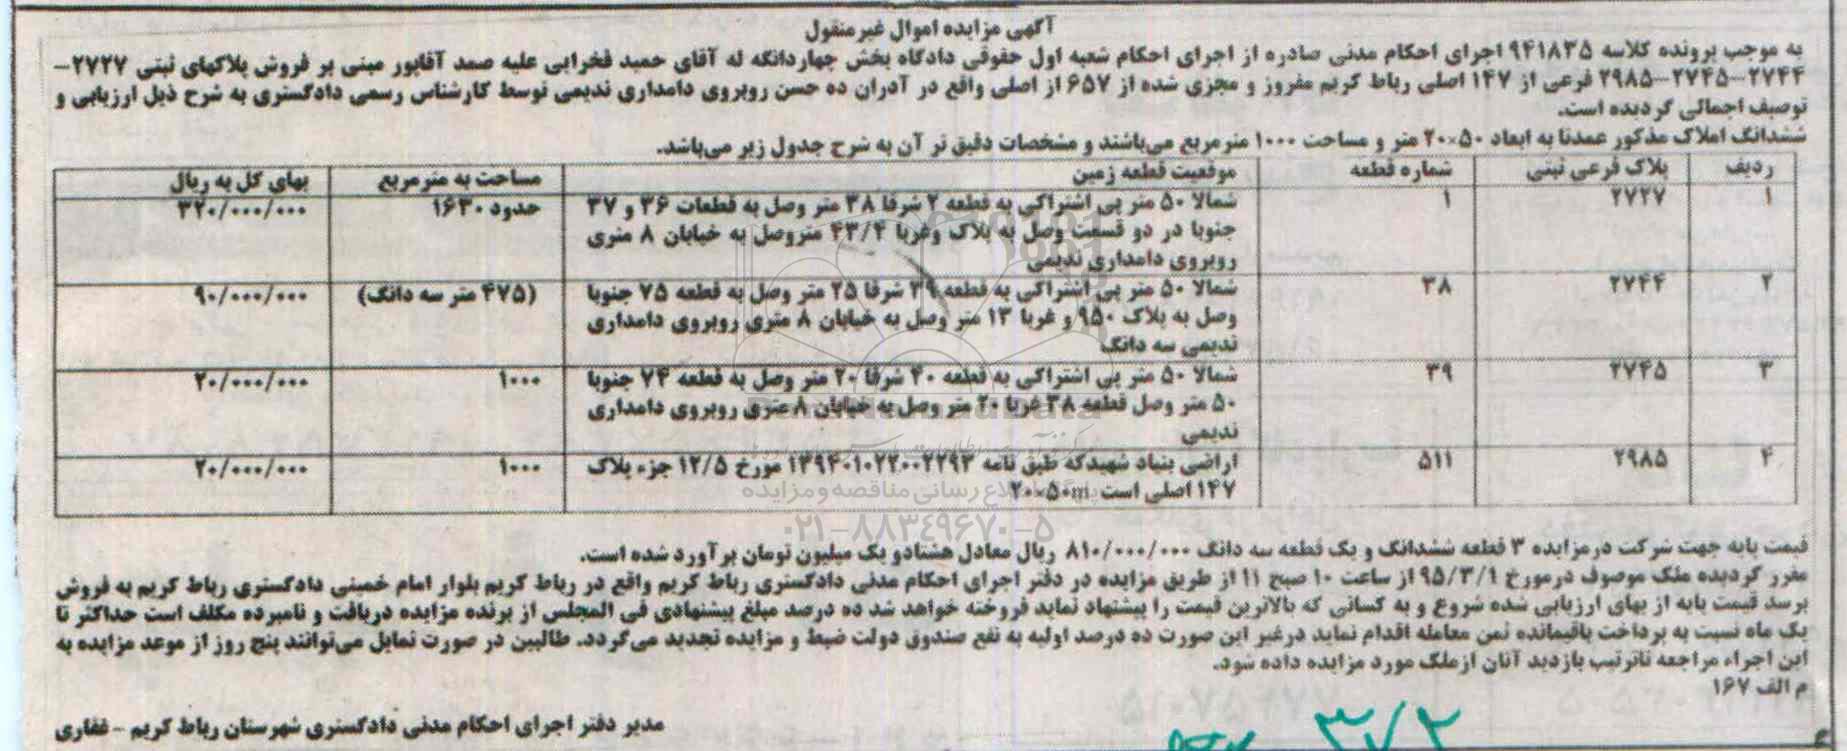 آگهی مزایده اموال غیرمنقول
به موجب پرونده کلاسه ۹۴۱۸۳۵ اجرای احکام مدنی صادره از اجرای احکام شعبه اول حقوقی دادگاه بخش چهاردانگه له آقای حمید فخرایی علیه صمد آقاپور مبنی بر فروش پلاکهای ثبتی ۲۷۲۷–
۲۷۴۴–۲۷۴۵–۲۹۸۵ فرعی از ۱۴۷ اصلی رباط کریم مفروز و مجزی شده از ۶۵۷ از اصلی واقع در آدران ده حسن روبروی دامداری ندیمی توسط کارشناس رسمی دادگستری به شرح ذیل ارزیابی و
توصیف اجمالی گردیده است.
ششدانگ املاک مذکور عمدتا به ابعاد ۵۰×۲۰ متر و مساحت ۱۰۰۰ مترمربع می‌باشند و مشخصات دقیق تر آن به شرح جدول زیر می‌باشد.
ردیف پلاک فرعی ثبتی شماره قطعه موقعیت قطعه زمین مساحت به مترمربع بهای کل به ریال
۱ ۲۷۲۷ ۱ شمالا ۵۰ متر پی اشتراکی به قطعه ۲ شرقا ۳۸ متر وصل به قطعات ۳۶ و ۳۷ حدود ۱۶۳۰ ۳۲۰/۰۰۰/۰۰۰
جنوبا در دو قسمت وصل به پلاک وغربا ۴۳/۴ متروصل به خیابان ۸ متری
روبروی دامداری ندیمی
۲ ۲۷۴۴ ۳۸ شمالا ۵۰ متر پی اشتراکی به قطعه ۳۹ شرقا ۲۵ متر وصل به قطعه ۷۵ جنوبا (۴۷۵ متر سه دانگ) ۹۰/۰۰۰/۰۰۰
وصل به پلاک ۹۵۰ و غربا ۱۳ متر وصل به خیابان ۸ متری روبروی دامداری
ندیمی سه دانگ
۳ ۲۷۴۵ ۳۹ شمالا ۵۰ متر پی اشتراکی به قطعه ۴۰ شرقا ۲۰ متر وصل به قطعه ۷۴ جنوبا ۱۰۰۰ ۲۰/۰۰۰/۰۰۰
۵۰ متر وصل قطعه ۳۸ غربا ۲۰ متر وصل به خیابان ۸ متری روبروی دامداری
ندیمی
۴ ۲۹۸۵ ۵۱۱ اراضی بنیاد شهیدکه طبق نامه ۱۳۹۴۰۱۰۲۲۰۰۲۲۹۳ مورخ ۱۲/۵ جزء پلاک ۱۰۰۰ ۲۰/۰۰۰/۰۰۰
۱۴۷ اصلی است ۲۰×۵۰m
پایگاه اطلاع رسانی مناقصه و مزایده
۰۲۱–۸۸۳۴۹۶۷۰–۵
قیمت پایه جهت شرکت درمزایده ۳ قطعه ششدانگ و یک قطعه سه دانگ ۸۱۰/۰۰۰/۰۰۰ ریال معادل هشتادو یک میلیون تومان برآورد شده است.
مقرر گردیده ملک موصوف درمورخ ۹۵/۳/۱ از ساعت ۱۰ صبح ۱۱ از طریق مزایده در دفتر اجرای احکام مدنی دادگستری رباط کریم واقع در رباط کریم بلوار امام خمینی دادگستری رباط کریم به فروش
برسد قیمت پایه از بهای ارزیابی شده شروع و به کسانی که بالاترین قیمت را پیشنهاد نماید فروخته خواهد شد ده درصد مبلغ پیشنهادی فی المجلس از برنده مزایده دریافت و نامبرده مکلف است حداکثر تا
یک ماه نسبت به پرداخت باقیمانده ثمن معامله اقدام نماید درغیر این صورت ده درصد اولیه به نفع صندوق دولت ضبط و مزایده تجدید می‌گردد. طالبین در صورت تمایل می‌توانند پنج روز از موعد مزایده به
این اجراء مراجعه تاترتیب بازدید آنان ازملک مورد مزایده داده شود.
م الف ۱۶۷
مدیر دفتر اجرای احکام مدنی دادگستری شهرستان رباط کریم – غفاری
۳/۲